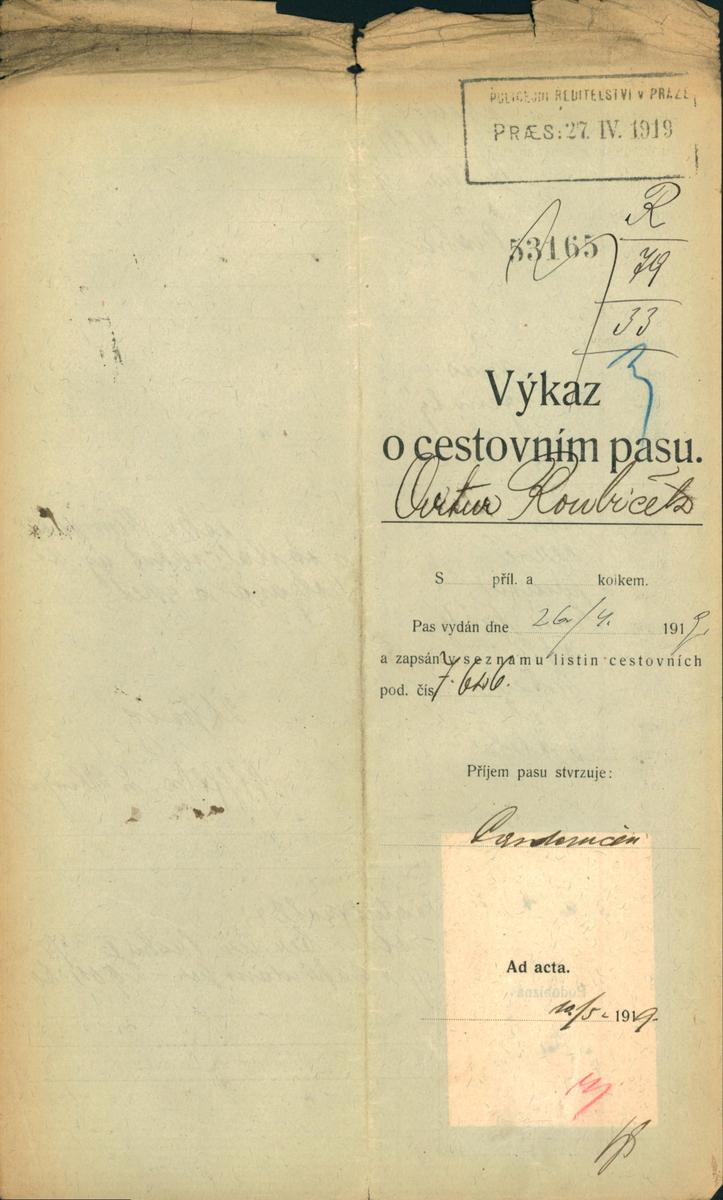 POLICEJNÍ ŘEDITELSTVÍ V PRAZE
PRÆS: 27. IV. 1919
53165
R
79
33
Výkaz
o cestovním pasu.
Artur Roubíček
S příl. a kolkem.
Pas vydán dne 26/4. 1919.
a zapsán v seznamu listin cestovních
pod. čís. 7646.
Příjem pasu stvrzuje:
Ad acta.
1919